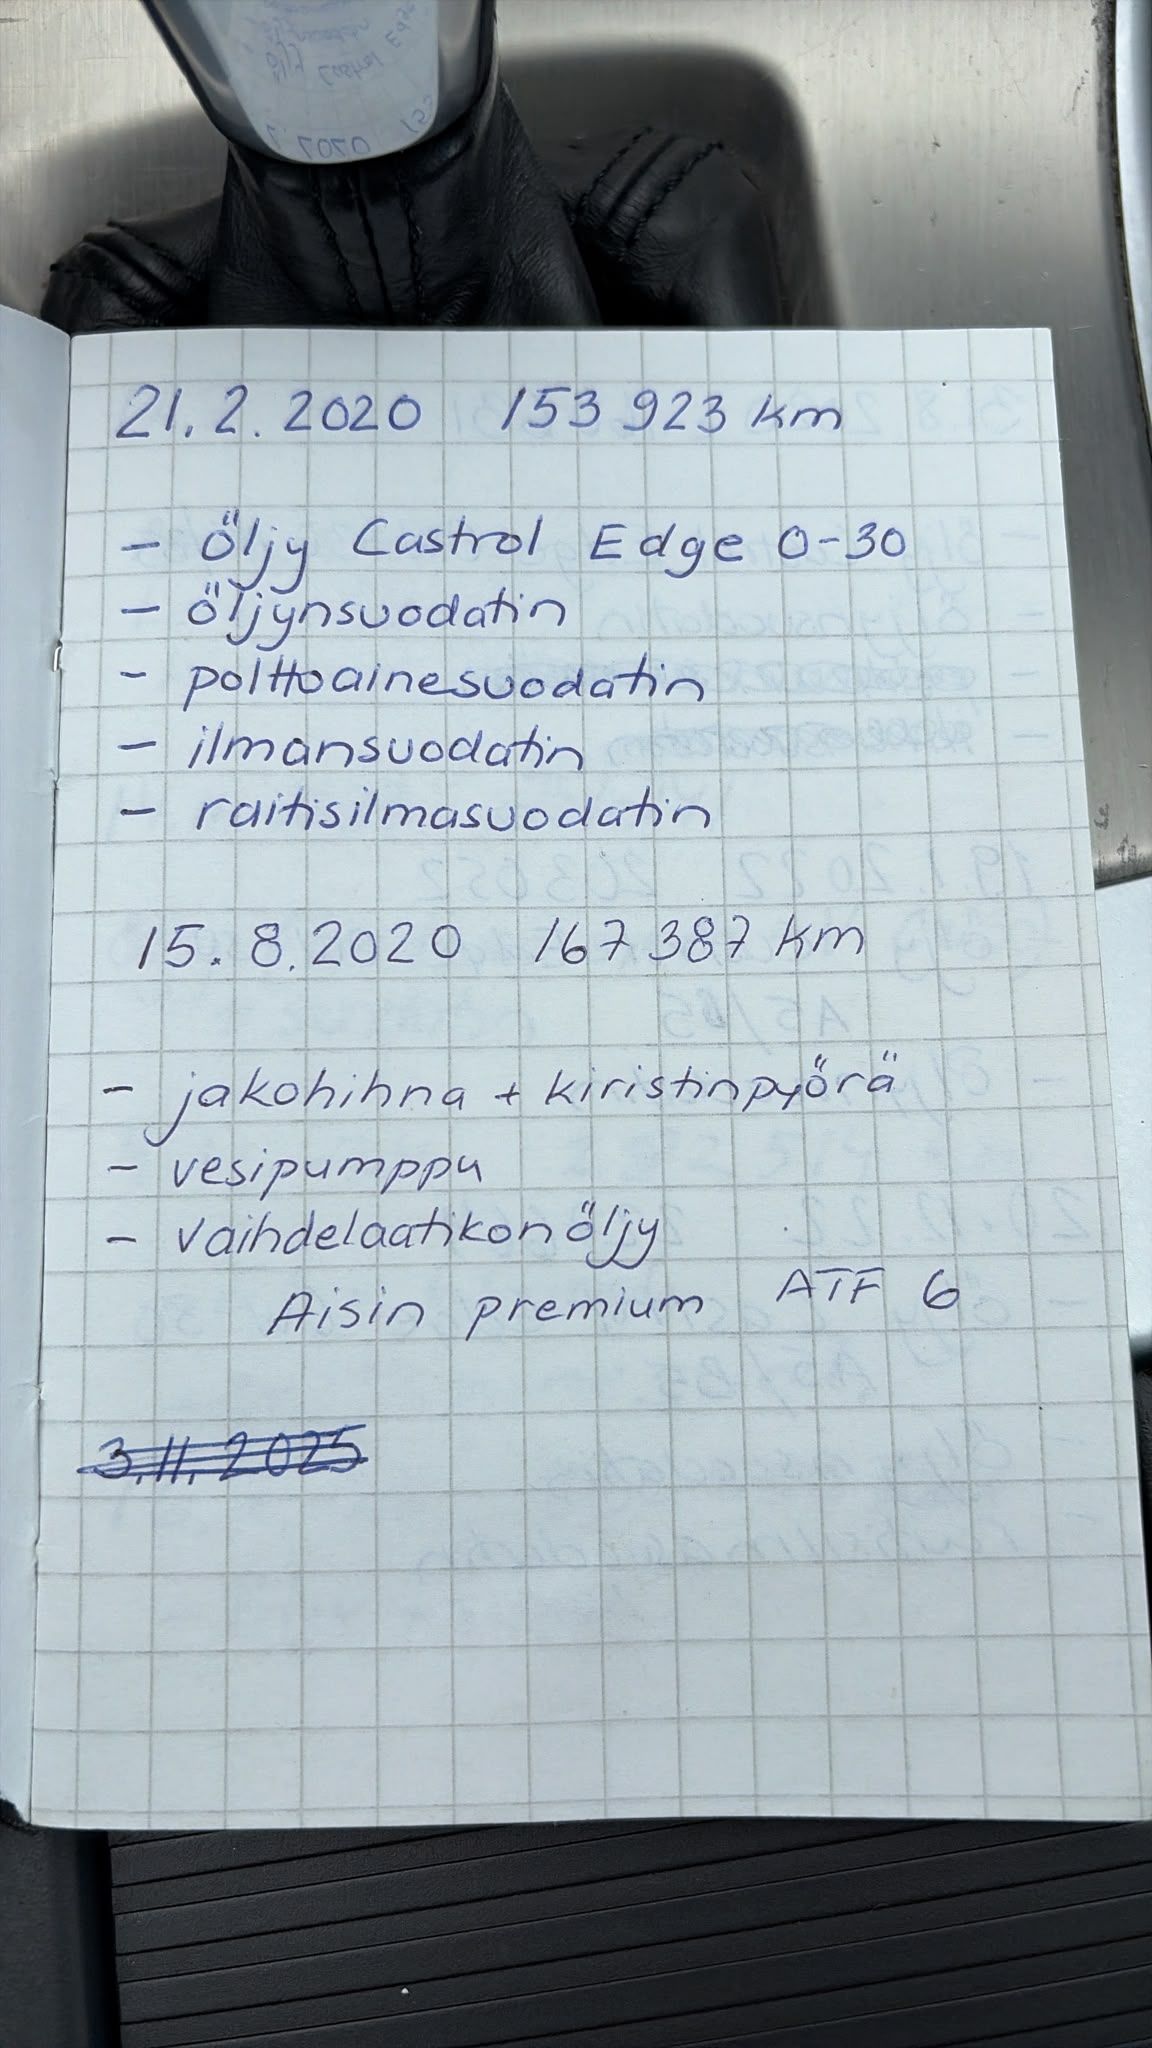 21.2.2020 153 923 km
- Öljy Castrol Edge 0-30
- öljynsuodatin
- polttoainesuodatin
- ilmansuodatin
- raitisilmasuodatin
15.8.2020 167 387 km
- jakohihna + kiristinpyörä
- vesipumppu
- vaihdelaatikon öljy
Aisin premium ATF 6
3.11.2025